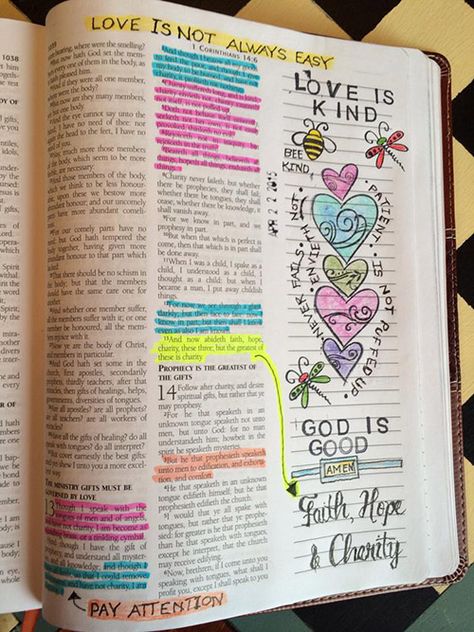 LOVE IS NOT ALWAYS EASY
1038
1 CORINTHIANS 14:6
hearing, where were the smelling?
18 But now hath God set the mem-
bers every one of them in the body, as
it hath pleased him.
19 And if they were all one member,
where were the body?
20 But now are they many members,
yet but one body.
21 And the eye cannot say unto the
hand, I have no need of thee: nor
again the head to the feet, I have no
need of you.
22 Nay, much more those members
of the body, which seem to be more
feeble, are necessary:
23 And those members of the body,
which we think to be less honour-
able, upon these we bestow more
abundant honour; and our uncomely
parts have more abundant comeli-
ness.
24 For our comely parts have no
need: but God hath tempered the
body together, having given more
abundant honour to that part which
lacked:
25 That there should be no schism in
the body; but that the members
should have the same care one for
another.
26 And whether one member suffer,
all the members suffer with it; or one
member be honoured, all the mem-
bers rejoice with it.
27 Now ye are the body of Christ,
and members in particular.
28 And God hath set some in the
church, first apostles, secondarily
prophets, thirdly teachers, after that
miracles, then gifts of healings, helps,
governments, diversities of tongues.
29 Are all apostles? are all prophets?
are all teachers? are all workers of
miracles?
30 Have all the gifts of healing? do all
speak with tongues? do all interpret?
31 But covet earnestly the best gifts:
and yet shew I unto you a more excel-
lent way.
THE MINISTRY GIFTS MUST BE
GOVERNED BY LOVE
13 Though I speak with the
tongues of men and of angels,
and have not charity, I am become as
sounding brass, or a tinkling cymbal.
2 And though I have the gift of
prophecy, and understand all myster-
ies, and all knowledge; and though I
have all faith, so that I could remove
mountains, and have not charity, I am
PAY ATTENTION
3 And though I bestow all my goods
to feed the poor, and though I give
my body to be burned, and have not
charity, it profiteth me nothing.
4 Charity suffereth long, and is kind;
charity envieth not; charity vaunteth
not itself, is not puffed up,
5 Doth not behave itself unseemly,
seeketh not her own, is not easily
provoked, thinketh no evil;
6 Rejoiceth not in iniquity, but
rejoiceth in the truth;
7 Beareth all things, believeth all
things, hopeth all things, endureth all
things.
8 Charity never faileth: but whether
there be prophecies, they shall fail;
whether there be tongues, they shall
cease; whether there be knowledge, it
shall vanish away.
9 For we know in part, and we
prophesy in part.
10 But when that which is perfect is
come, then that which is in part shall
be done away.
11 When I was a child, I spake as a
child, I understood as a child, I
thought as a child: but when I
became a man, I put away childish
things.
12 For now we see through a glass,
darkly; but then face to face: now I
know in part; but then shall I know
even as also I am known.
13 And now abideth faith, hope,
charity, these three; but the greatest
of these is charity.
PROPHECY IS THE GREATEST OF
THE GIFTS
14 Follow after charity, and desire
spiritual gifts, but rather that ye
may prophesy.
2 For he that speaketh in an
unknown tongue speaketh not unto
men, but unto God: for no man
understandeth him; howbeit in the
spirit he speaketh mysteries.
3 But he that prophesieth speaketh
unto men to edification, and exhorta-
tion, and comfort.
4 He that speaketh in an unknown
tongue edifieth himself; but he that
prophesieth edifieth the church.
5 I would that ye all spake with
tongues, but rather that ye prophe-
sied: for greater is he that prophesieth
than he that speaketh with tongues,
except he interpret, that the church
may receive edifying.
6 Now, brethren, if I come unto you
speaking with tongues, what shall I
profit you, except I shall speak to you
APR 22 2015
LOVE IS
KIND
BEE
KIND
PATIENT · IS NOT PUFFED UP ·
NEVER FAILS · ENVIETH NOT ·
GOD IS
GOOD
AMEN
Faith, Hope
& Charity